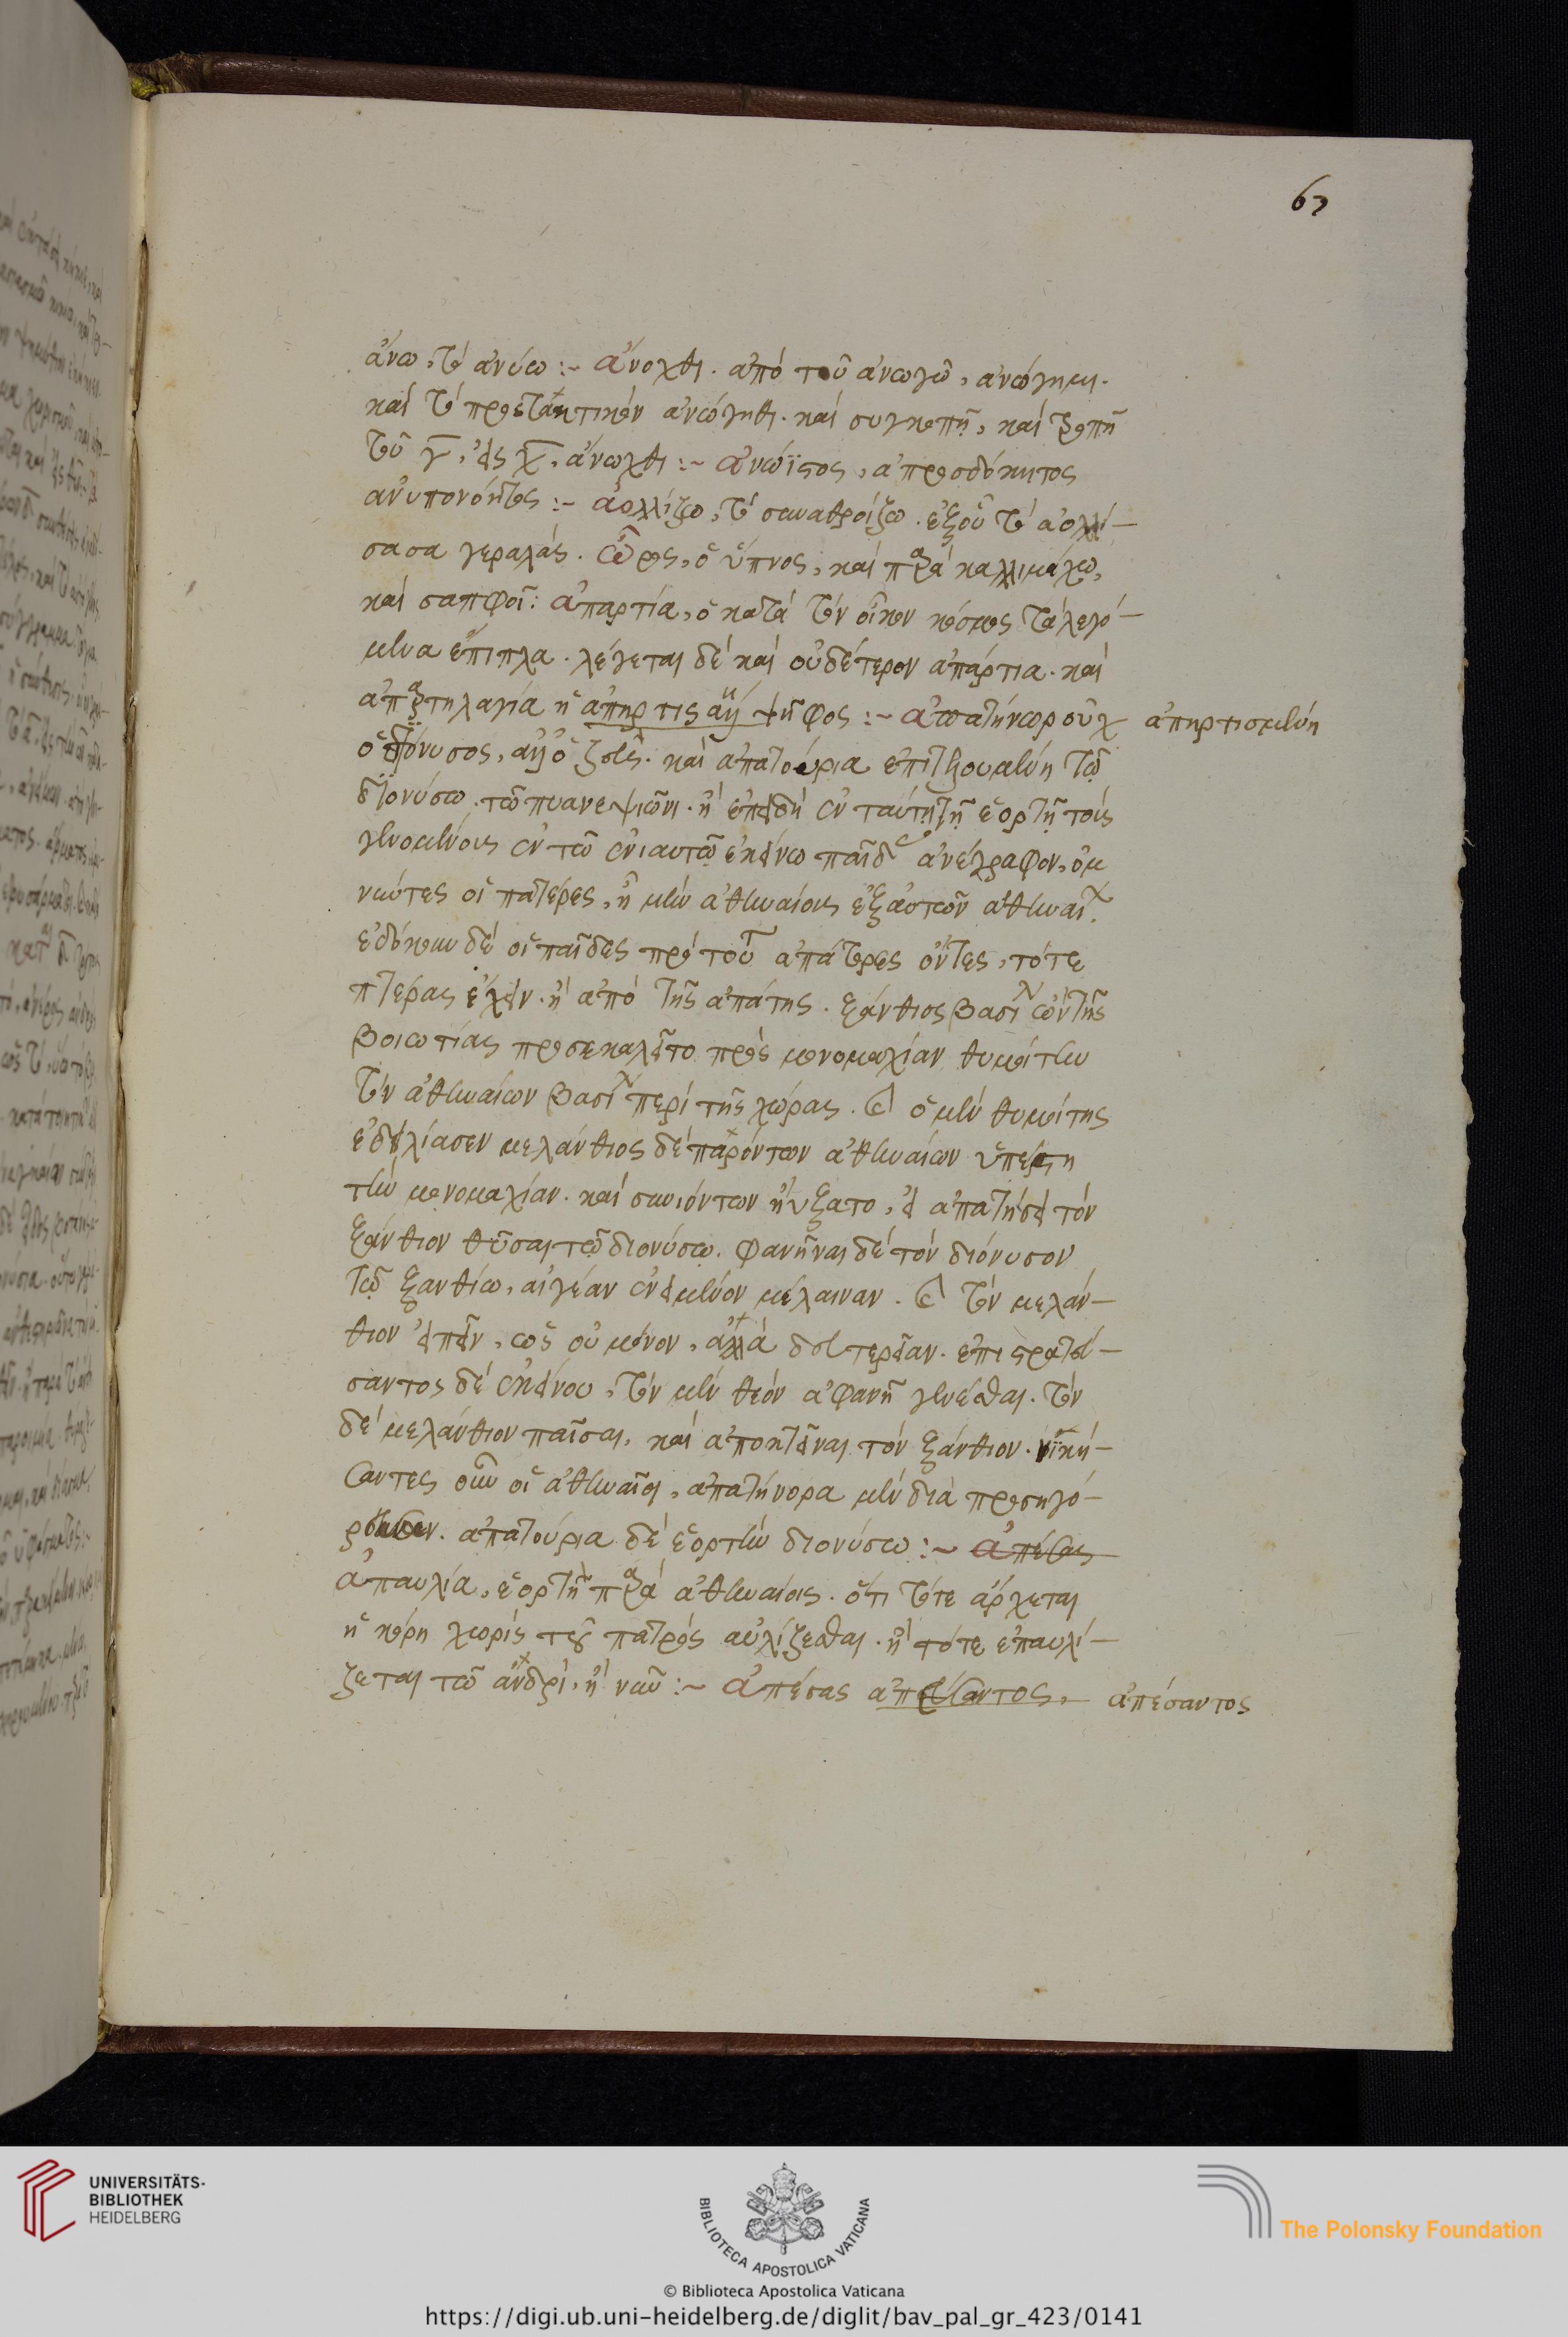 63
ἄνω, τὸ ἀνύω :~ ἄνοχθι. ἀπὸ τοῦ ἀνωγῶ, ἀνώγημι.
καὶ τὸ προστακτικὸν ἀνώγηθι. καὶ συγκοπῇ, καὶ τροπῇ
τοῦ γ, εἰς χ, ἄνωχθι :~ ἀνώϊστος, ἀπροσδόκητος
ἀνυπονόητος :~ ἀολλίζω, τὸ συναθροίζω. ἐξ οὗ τὸ ἀολλί-
σασα γεραλάς. ὦρος, ὁ ὕπνος, καὶ παρὰ καλλιμάχω,
καὶ σαπφοῖ: ἀπαρτία, ὁ κατὰ τὸν οἶκον κόσμος τὰ λεγό-
μενα ἔπιπλα. λέγεται δὲ καὶ οὐδέτερον ἀπάρτια. καὶ
ἀπαρτηλαγία ἡ ἀπηρτισ ψῆφος :~ ἀπατήνωρ οὐχ ἀπηρτισμένη
ὁ διόνυσος, ὁ ζεύς. καὶ ἀπατούρια ἐπιτελουμένη τῷ
διονύσω. τῶ πυανεψιῶνι. ἢ ἐπειδὴ ἐν ταύτῃ τῇ ἑορτῇ τοὺς
γενομένους ἐν τῶ ἐνιαυτῷ ἐκείνω παῖδ ἀνέγραφον, ὀμ
νύντες οἱ πατέρες, ἦ μὴν ἀθηναίους ἐξ ἀστῶν ἀθηναι.
ἐδόκουν δὲ οἱ παῖδες πρὸ τούτ ἀπάτορες ὄντες, τότε
πτέρας ἔχειν. ἢ ἀπὸ τῆς ἀπάτης. ξάνθιος βασιλ ὢν τῆς
βοιωτίας προσεκαλεῖτο πρὸς μονομαχίαν θυμοίτην
τὸν ἀθηναίων βασιλ περὶ τῆς χώρας. ὁ μὲν θυμοίτης
ἐδειλίασεν μελάνθιος δὲ παρόντων ἀθηναίων ὑπέστη
τὴν μονομαχίαν. καὶ συνιόντων ηὔξατο, εἰ ἀπατήσει τὸν
ξάνθιον θῦσαι τῷ διονύσω. φανῆναι δὲ τὸν διόνυσον
τῷ ξανθίω, αἰγέαν ἐνειμένον μέλαιναν. τὸν μελάν-
θιον εἰπεῖν, ὡς οὐ μόνον, ἀλλὰ δευτερεῖαν. ἐπιστρατεύ-
σαντος δὲ ἐκείνου, τὸν μὲν θεὸν ἀφανῆ γενέσθαι. τὸν
δὲ μελάνθιον παῖσαι, καὶ ἀποκτεῖναι τὸν ξάνθιον. νϊκή-
σαντες οὖν οἱ ἀθηναῖοι, ἀπατήνορα μὲν δία προσηγό-
ρευσαν. ἀπατούρια δὲ ἑορτὴν διονύσω :~ ἀπέσας
ἀπαυλία, ἑορτὴ παρὰ ἀθηναίοις. ὅτι τότε ἄρχεται
ἡ κόρη χωρὶς τοῦ πατρὸς αὐλίζεσθαι. ἢ τότε ἐπαυλί-
ζεται τῶ ἀνδρὶ, ἢ ναῦ :~ ἀπέσας ἀπεύσαντος, ἀπέσαντος
UNIVERSITÄTS-
BIBLIOTHEK
HEIDELBERG
BIBLIOTECA APOSTOLICA VATICANA
The Polonsky Foundation
© Biblioteca Apostolica Vaticana
https://digi.ub.uni-heidelberg.de/diglit/bav_pal_gr_423/0141